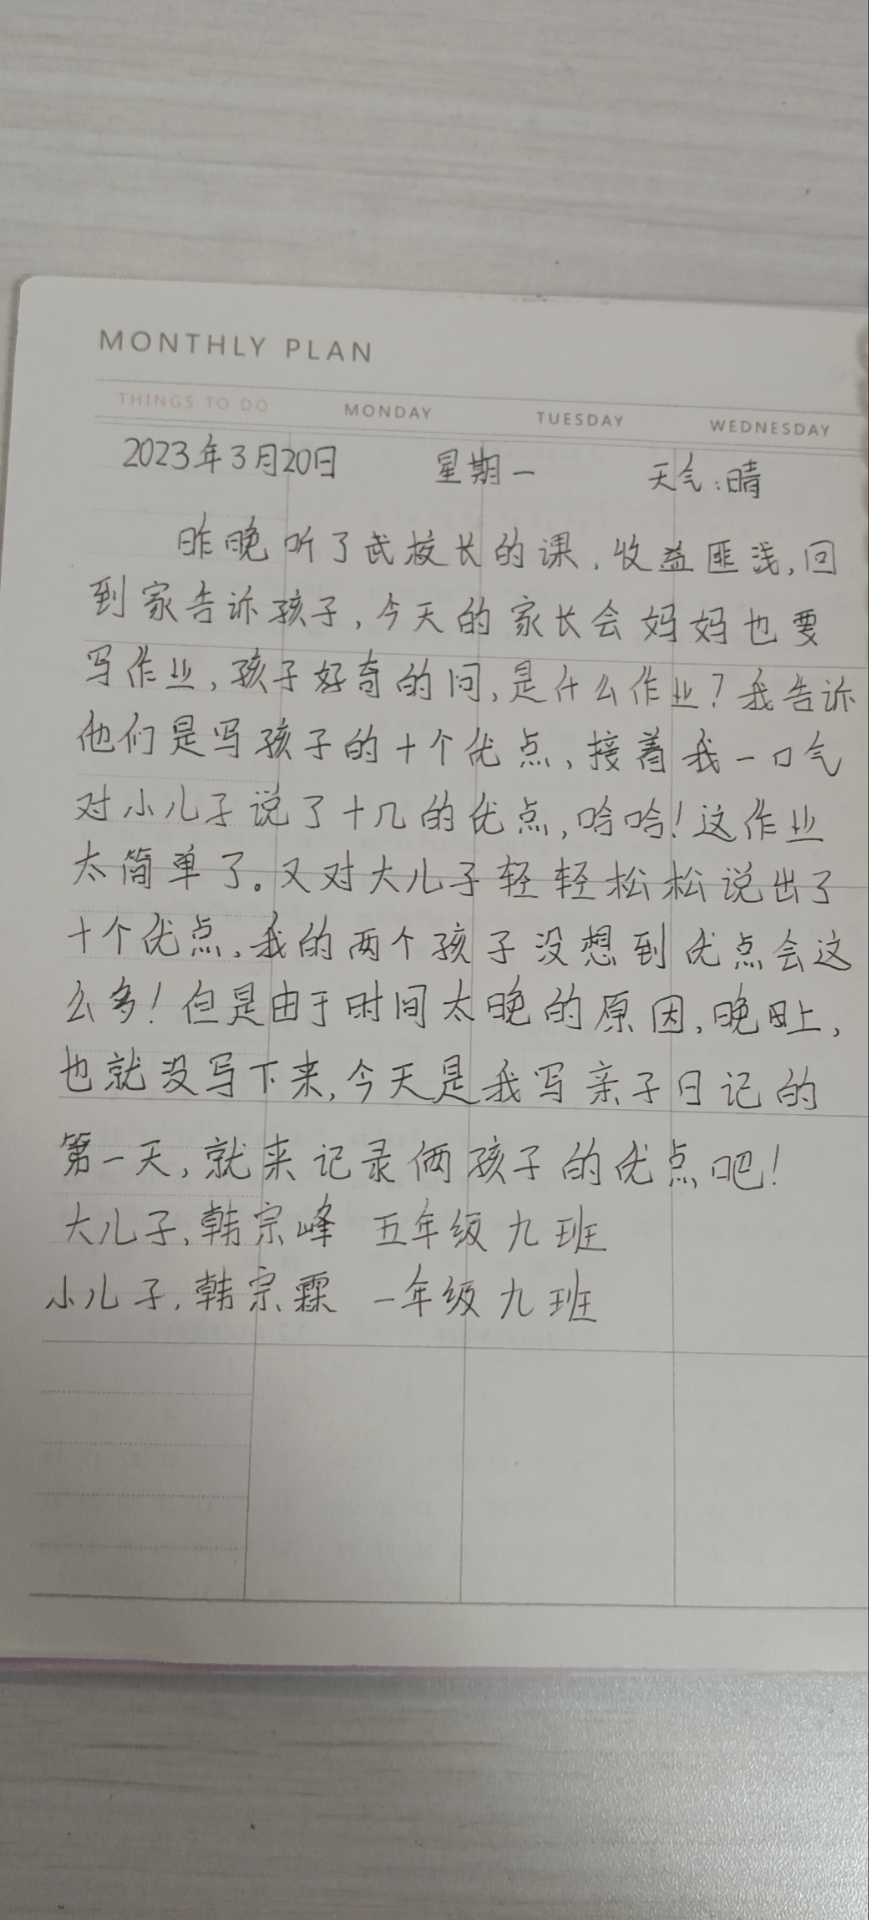 MONTHLY PLAN
THINGS TO DO MONDAY TUESDAY WEDNESDAY
2023年3月20日 星期一 天气:晴
昨晚听了武校长的课,收益匪浅,回
到家告诉孩子,今天的家长会妈妈也要
写作业,孩子好奇的问,是什么作业?我告诉
他们是写孩子的十个优点,接着我一口气
对小儿子说了十几的优点,哈哈!这作业
太简单了。又对大儿子轻轻松松说出了
十个优点,我的两个孩子没想到优点会这
么多!但是由于时间太晚的原因,晚上,
也就没写下来,今天是我写亲子日记的
第一天,就来记录俩孩子的优点吧!
大儿子,韩宗峰 五年级九班
小儿子,韩宗霖 一年级九班